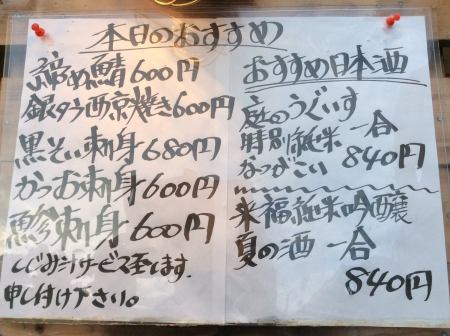 本日のおすすめ
〆鯖 600円
銀タラ西京焼き600円
黒そい刺身680円
かつお刺身600円
刺身600円
しじみ汁サービス至します。
申し付け下さい。
おすすめ日本酒
庭のうぐいす
特別純米 一合
なつがこい 840円
来福純米吟醸
夏の酒 一合
840円